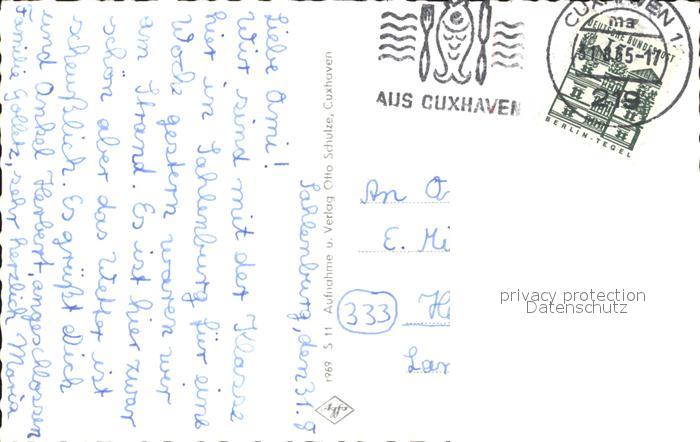 Sahlenburg, den 31. 8
Liebe Omi!
Wir sind mit der Klasse
hier in Sahlenburg für eine
Woche gestern waren wir
am Strand. Es ist hier zwar
schön aber das Wetter ist
scheußlich. Es grüßt Dich
und Onkel Herbert, angeschlossen
Familie sehr herzlich Maria
1969 S 11 Aufnahme u. Verlag Otto Schulze, Cuxhaven
AUS CUXHAVEN
CUXHAVEN 1
31.8.65-17
219
DEUTSCHE BUNDESPOST
BERLIN-TEGEL
An O
E. Mi
333 H
Lan
privacy protection
Datenschutz